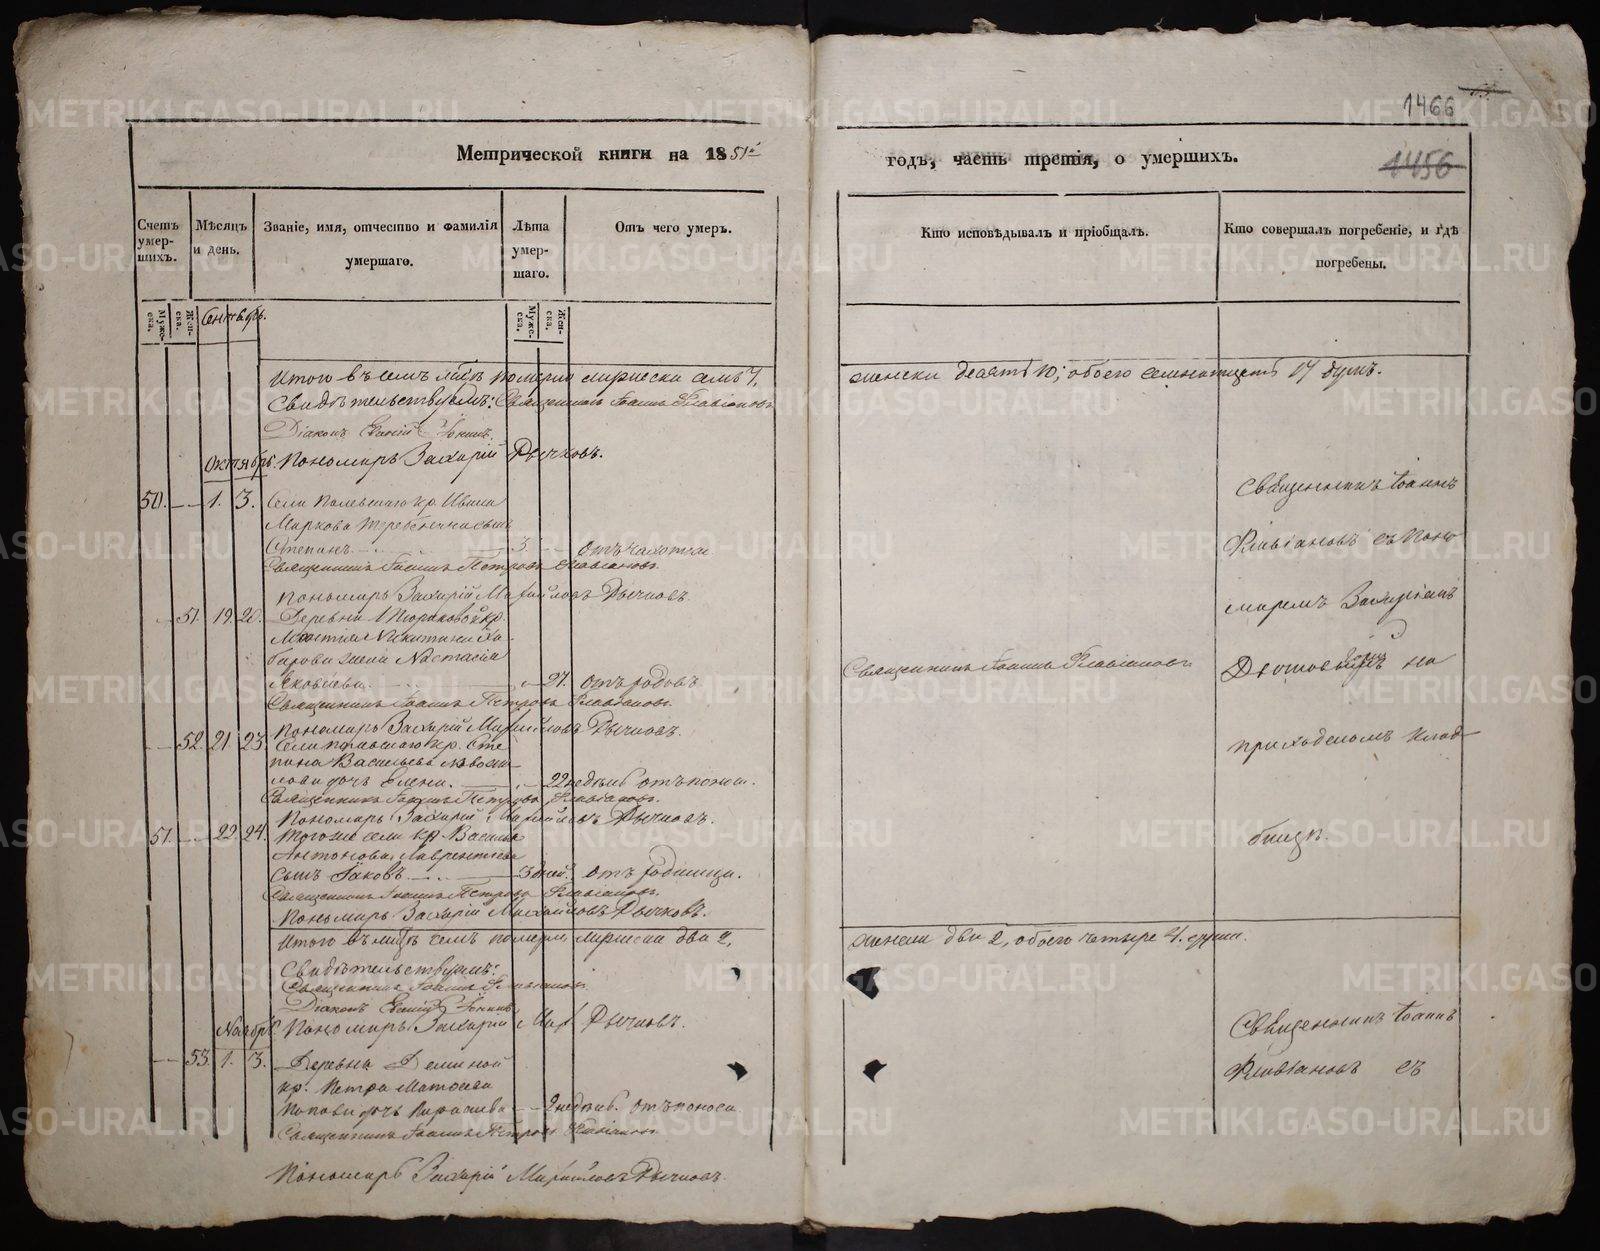 1466
1456
Метрической книги на 1851й
годъ, часть третія, о умершихъ.
Счетъ умер-шихъ.
Мѣсяцъ и день.
Званіе, имя, отчество и фамилія умершаго.
Лѣта умер-шаго.
Отъ чего умеръ.
Кто исповѣдывалъ и пріобщалъ.
Кто совершалъ погребеніе, и гдѣ погребены.
Муже-ска.
Жен-ска.
Сентябрь.
Муже-ска.
Жен-ска.
Итого въ семъ померло мужеска семь 7,
женска десять 10, обоего семнатцать 17 душъ.
Свидѣтельствуемъ: Священникъ Іоаннъ Флавіановъ
Діаконъ
Октябрь. Пономарь Захарій Рычковъ.
50. 1. 3. Села Полевскаго кр. Ивана
Маркова сынъ
Степанъ 3 отъ чахотки
Священникъ Іоаннъ Петровъ Флавіановъ
Пономарь Захарій Михайловъ Рычковъ.
51. 19 20. Деревни кр.
Никитина Ха-
барова жена Настасія
Яковлева. 27. отъ родовъ
Священникъ Іоаннъ Петровъ Флавіановъ.
Пономарь Захарій Михайловъ Рычковъ.
52. 21 23. Села Полевскаго кр. Сте-
пана Васильева
дочь Елена. 22 недѣль отъ поноса.
Священникъ Іоаннъ Петровъ Флавіановъ.
Пономарь Захарій Михайловъ Рычковъ.
51. 22 24. Того же села кр. Василья
Антонова Лаврентьева
сынъ Іаковъ 3 дней. отъ родимца.
Священникъ Іоаннъ Петровъ Флавіановъ.
Пономарь Захарій Михайловъ Рычковъ.
Священникъ Іоаннъ
Флавіановъ съ Поно-
маремъ Захаріемъ
Священникъ Іоаннъ Флавіановъ
Рычковымъ на
приходскомъ клад-
бищѣ.
Итого въ семъ померло мужеска два 2,
женска два 2, обоего четыре 4. души.
Свидѣтельствуемъ:
Священникъ Іоаннъ Флавіановъ
Діаконъ
Ноябрь Пономарь Захарій Мих Рычковъ.
53. 1. 3. Деревни Деминой
кр. Петра Матѳеева
Попова дочь 2 недѣль. отъ поноса
Священникъ Іоаннъ Петровъ Флавіановъ
Пономарь Захарій Михайловъ Рычковъ.
Священникъ Іоаннъ
Флавіановъ съ
METRIKI.GASO-URAL.RU